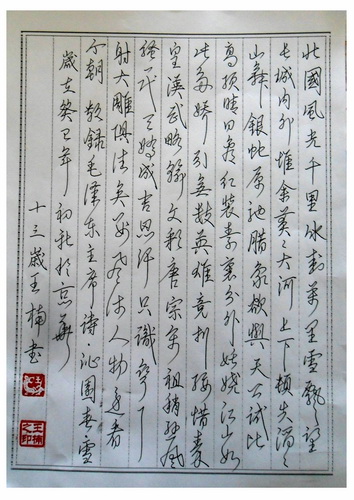 北國風光千里冰封萬里雪飄望
長城內外惟余莽々大河上下頓失滔々
山舞銀蛇原馳臘象欲與天公試比
高須晴日看紅裝素裹分外妖嬈江山如
此多嬌引無數英雄競折腰惜秦
皇漢武略輸文彩唐宗宋祖稍遜風
騷一代天驕成吉思汗只識彎弓
射大雕俱往矣數風流人物還看
今朝 敬錄毛澤東主席詩沁園春雪
歲在癸巳年初秋於京華
十三歲王楠書
王楠之印